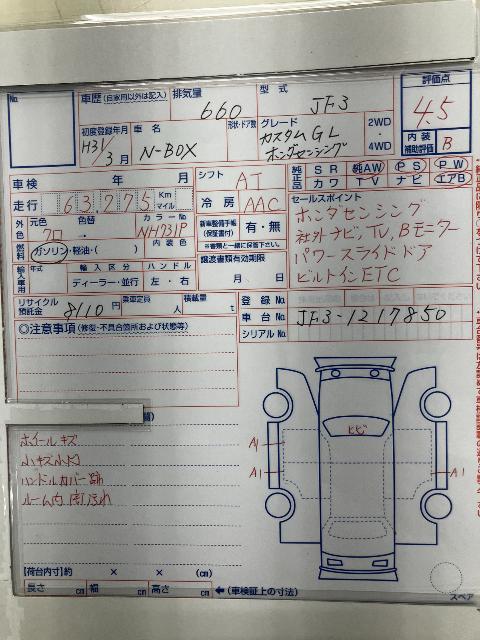 No.
車歴(自家用以外は記入)
排気量 660
型式 JF3
評価点 4.5
初度登録年月 H31/3月
車名 N-BOX
形状・ドア数
グレード カスタムGL ホンダセンシング
2WD・4WD
内装補助評価 B
車検 年 月
シフト AT
純正品 SR 純AW PS PW
カワ TV ナビ エアB
走行 63,275 Km マイル
冷房 AAC
セールスポイント
ホンダセンシング
社外ナビ, TV, Bモニター
パワースライドドア
ビルトインETC
外色 元色 クロ 色替
カラーNo NH731P
内装色
新車整備手帳(保証書付) 有・無
※書類と一緒に保管下さい
燃料 ガソリン・軽油・( )
譲渡書類有効期限
月 日
輸入車用 年式 輸入区分 ハンドル
ディーラー・並行 左・右
リサイクル預託金 8110円
乗車定員 人
積載量 t
登録No.
車台No. JF3-1217850
シリアルNo.
◎注意事項(修復・不具合箇所および状態等)
ホイールキズ
小キズ小凹
ハンドルカバー跡
ルーム内
ヒビ
A1
A1
A1
【荷台内寸】約 × × (cm)
長さ cm 幅 cm 高さ cm ←(車検証上の寸法)
スペア